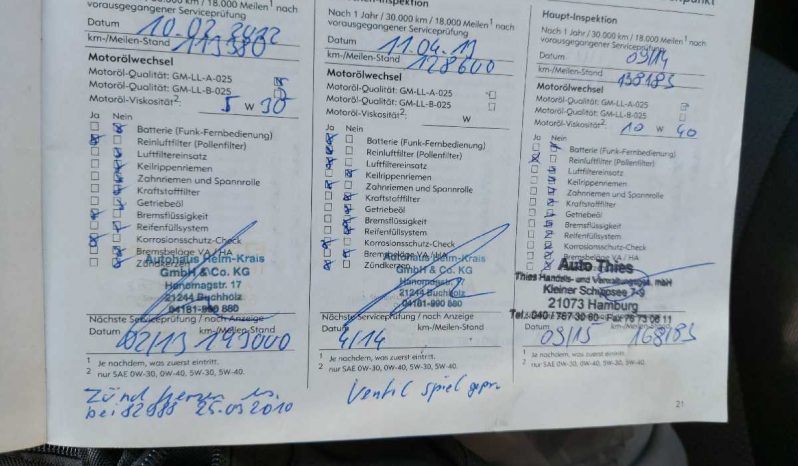 Nach 1 Jahr / 30.000 km / 18.000 Meilen¹ nach
vorausgegangener Serviceprüfung
Datum 10.02.2012
km-/Meilen-Stand 113980
Motorölwechsel
Motoröl-Qualität: GM-LL-A-025
Motoröl-Qualität: GM-LL-B-025
Motoröl-Viskosität²: 5 W 30
Ja Nein
Batterie (Funk-Fernbedienung)
Reinluftfilter (Pollenfilter)
Luftfiltereinsatz
Keilrippenriemen
Zahnriemen und Spannrolle
Kraftstofffilter
Getriebeöl
Bremsflüssigkeit
Reifenfüllsystem
Korrosionsschutz-Check
Bremsbeläge VA / HA
Zündkerzen
Autohaus Heim-Krais
GmbH & Co. KG
Hanomagstr. 17
21244 Buchholz
04181-990 880
Nächste Serviceprüfung / nach Anzeige
Datum km-/Meilen-Stand
02/13 143000
¹ Je nachdem, was zuerst eintritt.
² nur SAE 0W-30, 0W-40, 5W-30, 5W-40.
bei 82988 25.03.2010
-Inspektion
Nach 1 Jahr / 30.000 km / 18.000 Meilen¹ nach
vorausgegangener Serviceprüfung
Datum 11.04.13
km-/Meilen-Stand 128600
Motorölwechsel
Motoröl-Qualität: GM-LL-A-025
Motoröl-Qualität: GM-LL-B-025
Motoröl-Viskosität²: W
Ja Nein
Batterie (Funk-Fernbedienung)
Reinluftfilter (Pollenfilter)
Luftfiltereinsatz
Keilrippenriemen
Zahnriemen und Spannrolle
Kraftstofffilter
Getriebeöl
Bremsflüssigkeit
Reifenfüllsystem
Korrosionsschutz-Check
Bremsbeläge VA / HA
Zündkerzen
Autohaus Heim-Krais
GmbH & Co. KG
Hanomagstr. 17
21244 Buchholz
04181-990 880
Nächste Serviceprüfung / nach Anzeige
Datum km-/Meilen-Stand
4/14
¹ Je nachdem, was zuerst eintritt.
² nur SAE 0W-30, 0W-40, 5W-30, 5W-40.
Ventil spiel gepr.
Haupt-Inspektion
Nach 1 Jahr / 30.000 km / 18.000 Meilen¹ nach
vorausgegangener Serviceprüfung
Datum 03/14
km-/Meilen-Stand 138183
Motorölwechsel
Motoröl-Qualität: GM-LL-A-025
Motoröl-Qualität: GM-LL-B-025
Motoröl-Viskosität²: 10 W 40
Ja Nein
Batterie (Funk-Fernbedienung)
Reinluftfilter (Pollenfilter)
Luftfiltereinsatz
Keilrippenriemen
Zahnriemen und Spannrolle
Kraftstofffilter
Getriebeöl
Bremsflüssigkeit
Reifenfüllsystem
Korrosionsschutz-Check
Bremsbeläge VA / HA
Auto Thies
Thies Handels- und Verwaltungsges. mbH
Kleiner Schippsee 7-9
21073 Hamburg
Tel.: 040 / 767 30 60 - Fax 76 73 06 11
Datum km-/Meilen-Stand
03/15 168183
¹ Je nachdem, was zuerst eintritt.
² nur SAE 0W-30, 0W-40, 5W-30, 5W-40.
21